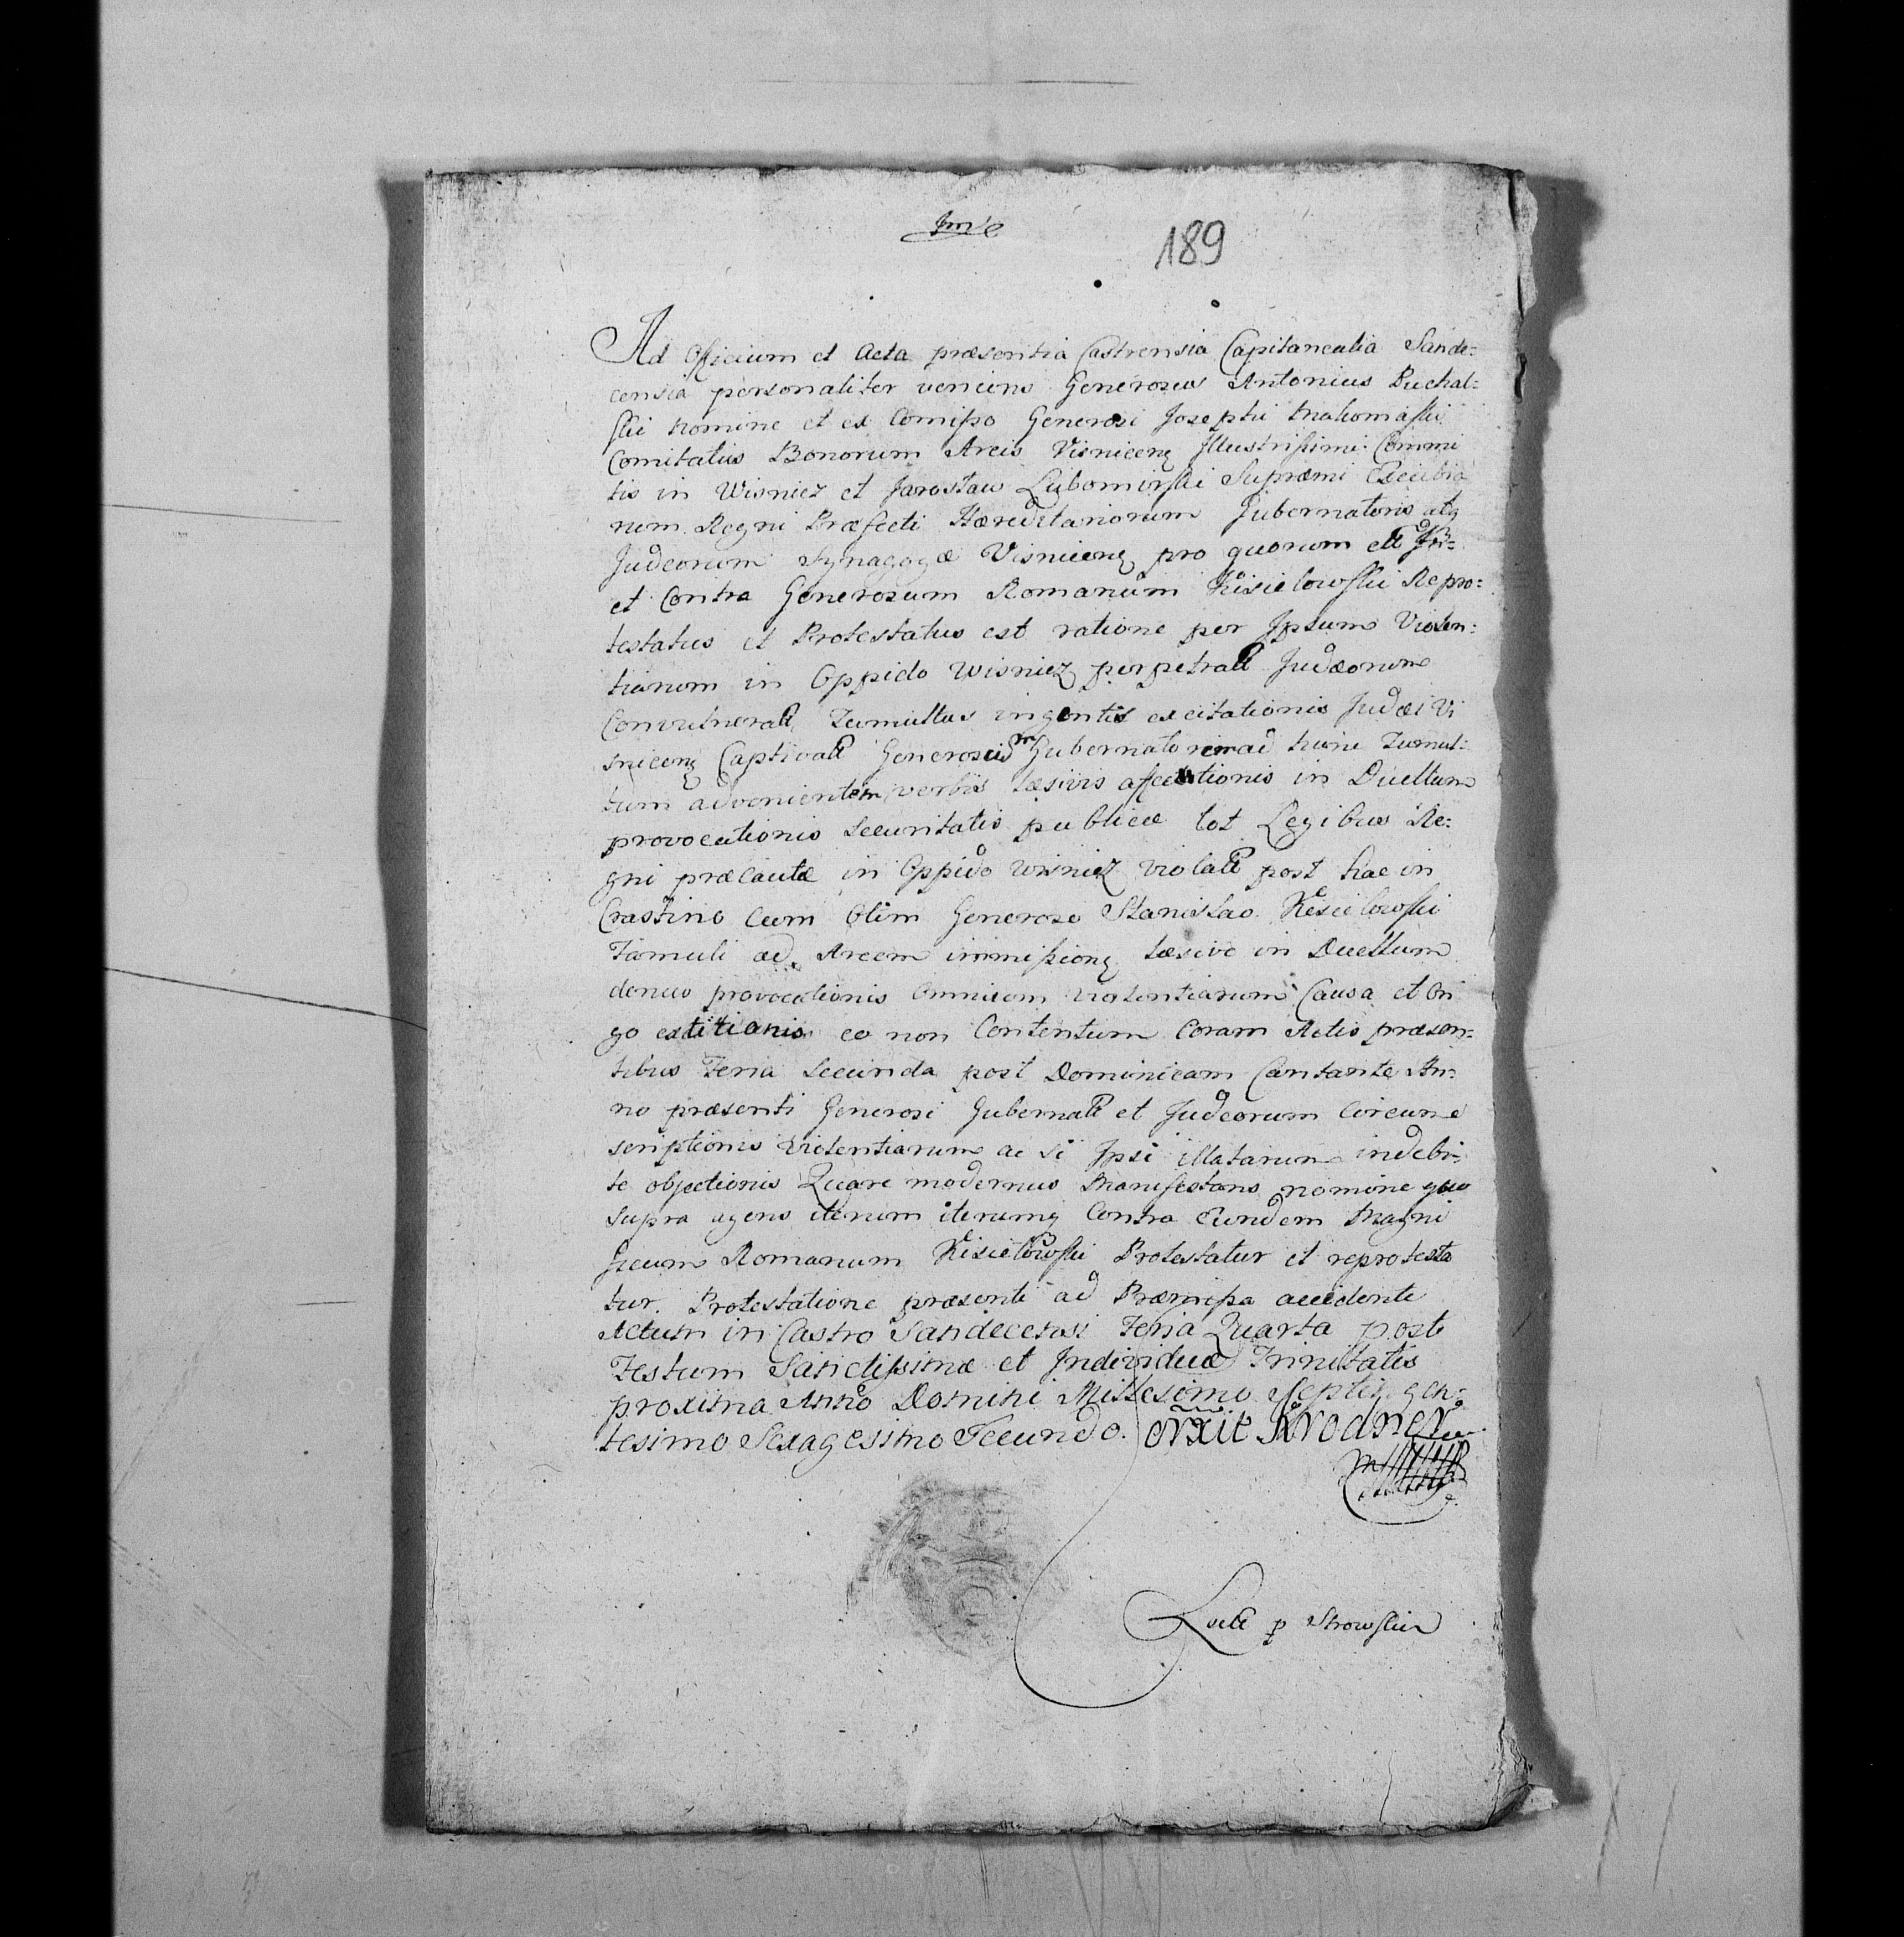 189
Ad Officium et Acta præsentia Castrensia Capitanealia Sande:
censia personaliter veniens Generosus Antonius Puchal:
ski Nomine et ex Comisso Generosi Josephi Malomaski
Comitatus Bonorum Arcis Visnicenq Illustrissimi Commi
tis in Wisnicz et Jarosław Lubomirski Supræmi Excubia
rum Regni Præfecti Hæreditariorum Gubernatoris atq
Judeorum Synagogæ Visnicenq pro quorum
et Contra Generosum Romanum Kisielowski Repro:
testatus et Protestatus est ratione per Ipsum Violen:
tiarum in Oppido Wisnicz perpetrate Judæorum
Convulnerate Tumultus ingentis excitationis Judæi Vi
snicenq Captivate Generosum Gubernatorem ad hunc Tumul:
tum advenientem verbis læsivis affectationis in Duellum
provocationis Securitatis publicæ tot Legibus Re:
gni præcautæ in Oppido Wisnicz violate post hac in
Crastino Cum Olim Generoso Stanislao Kisielowski
Famuli ad Arcem immissionq læsive in Duellum
denuo provocationis Omnium violentiarum Causa et Ori
go extitionis eo non Contentum Coram Actis præsen:
tibus Feria Secunda post Dominicam Cantante An:
no præsenti Generosi Gubernate et Judeorum Circum
scriptionis Violentiarum ac si Ipsi illatarum indebi:
te objectionis Quare modernus Manifestans nomine quo
supra agens iterum iterumq Contra Eundem Magni
ficum Romanum Kisielowski Protestatur et reprotesta
tur. Protestatione præsenti ad Præmissa accedente
Actum in Castro Sandecensi Feria Quarta post
Festum Sanctissimæ et Individuæ Trinitatis
proxima Anno Domini Millesimo Septingen:
tesimo Sexagesimo Secundo.